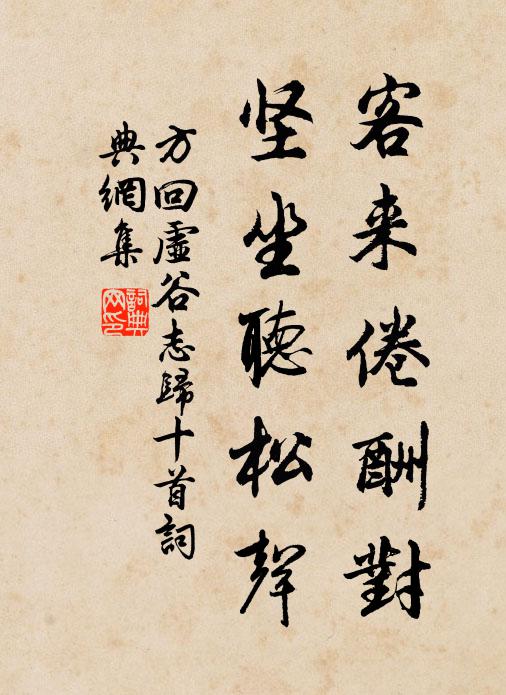 客来倦酬對
坚坐聽松聲
方回虛谷志歸十首詞
典網集
詞典網印